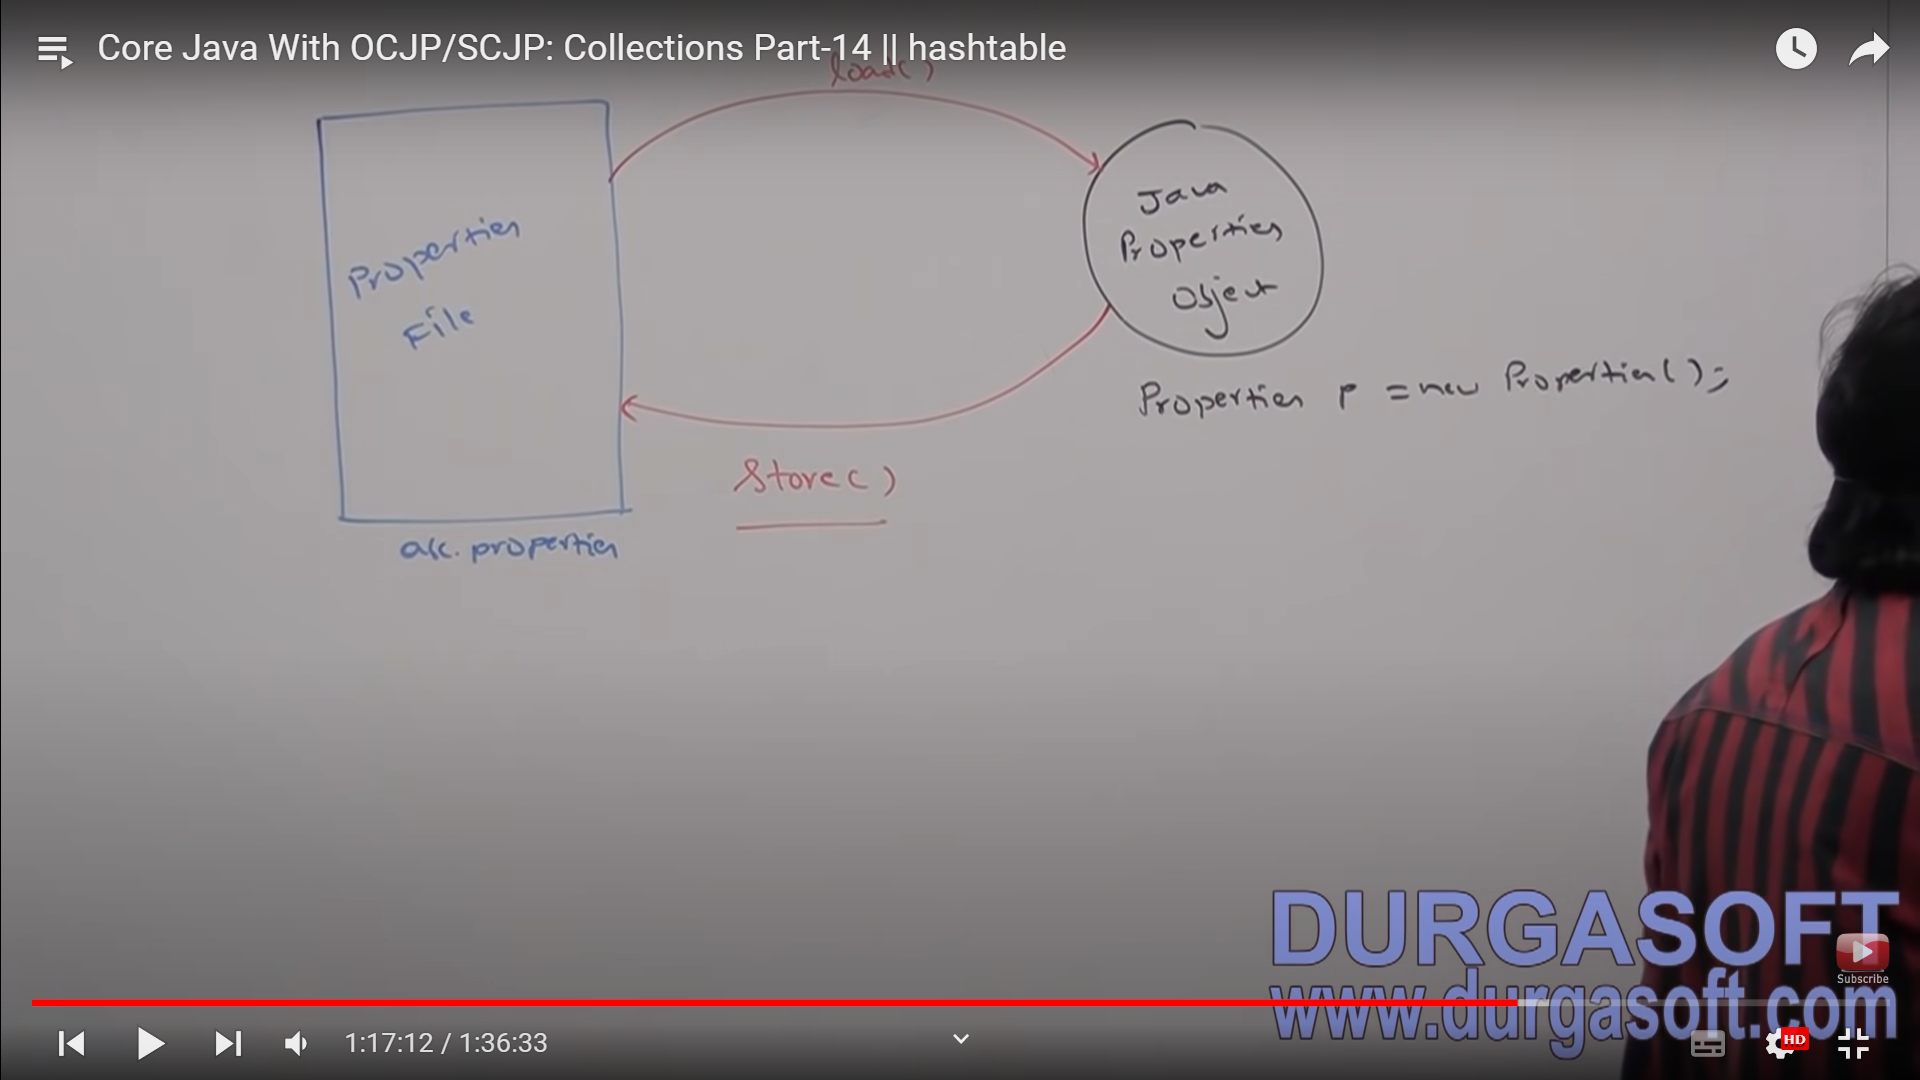 Core Java With OCJP/SCJP: Collections Part-14 || hashtable
load()
Java
Properties
Object
Properties
File
Properties P = new Properties();
Store()
abc.properties
DURGASOFT
www.durgasoft.com
Subscribe
1:17:12 / 1:36:33
HD